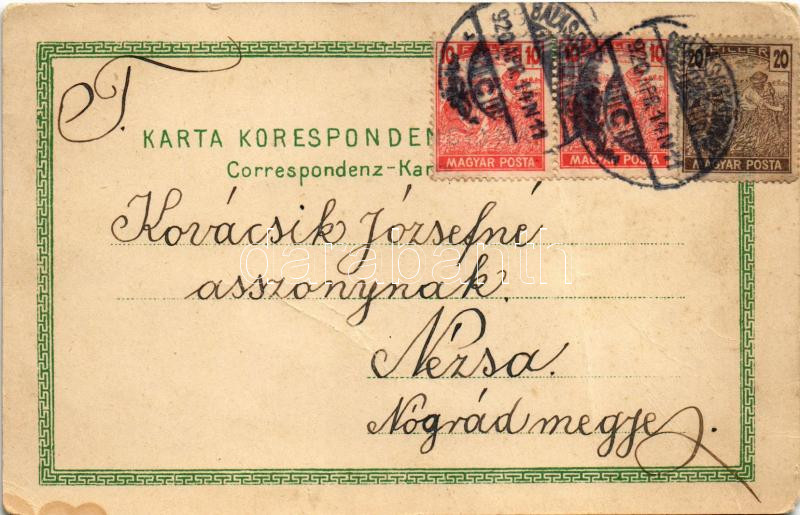 T.
10 FILLER 10
MAGYAR POSTA
10 10
MAGYAR POSTA
20 FILLER 20
MAGYAR POSTA
KARTA KORESPONDEN
Correspondenz-Kar
Kovácsik Józsefné
asszonynak.
Nézsa.
Nógrád megye.
darabanth